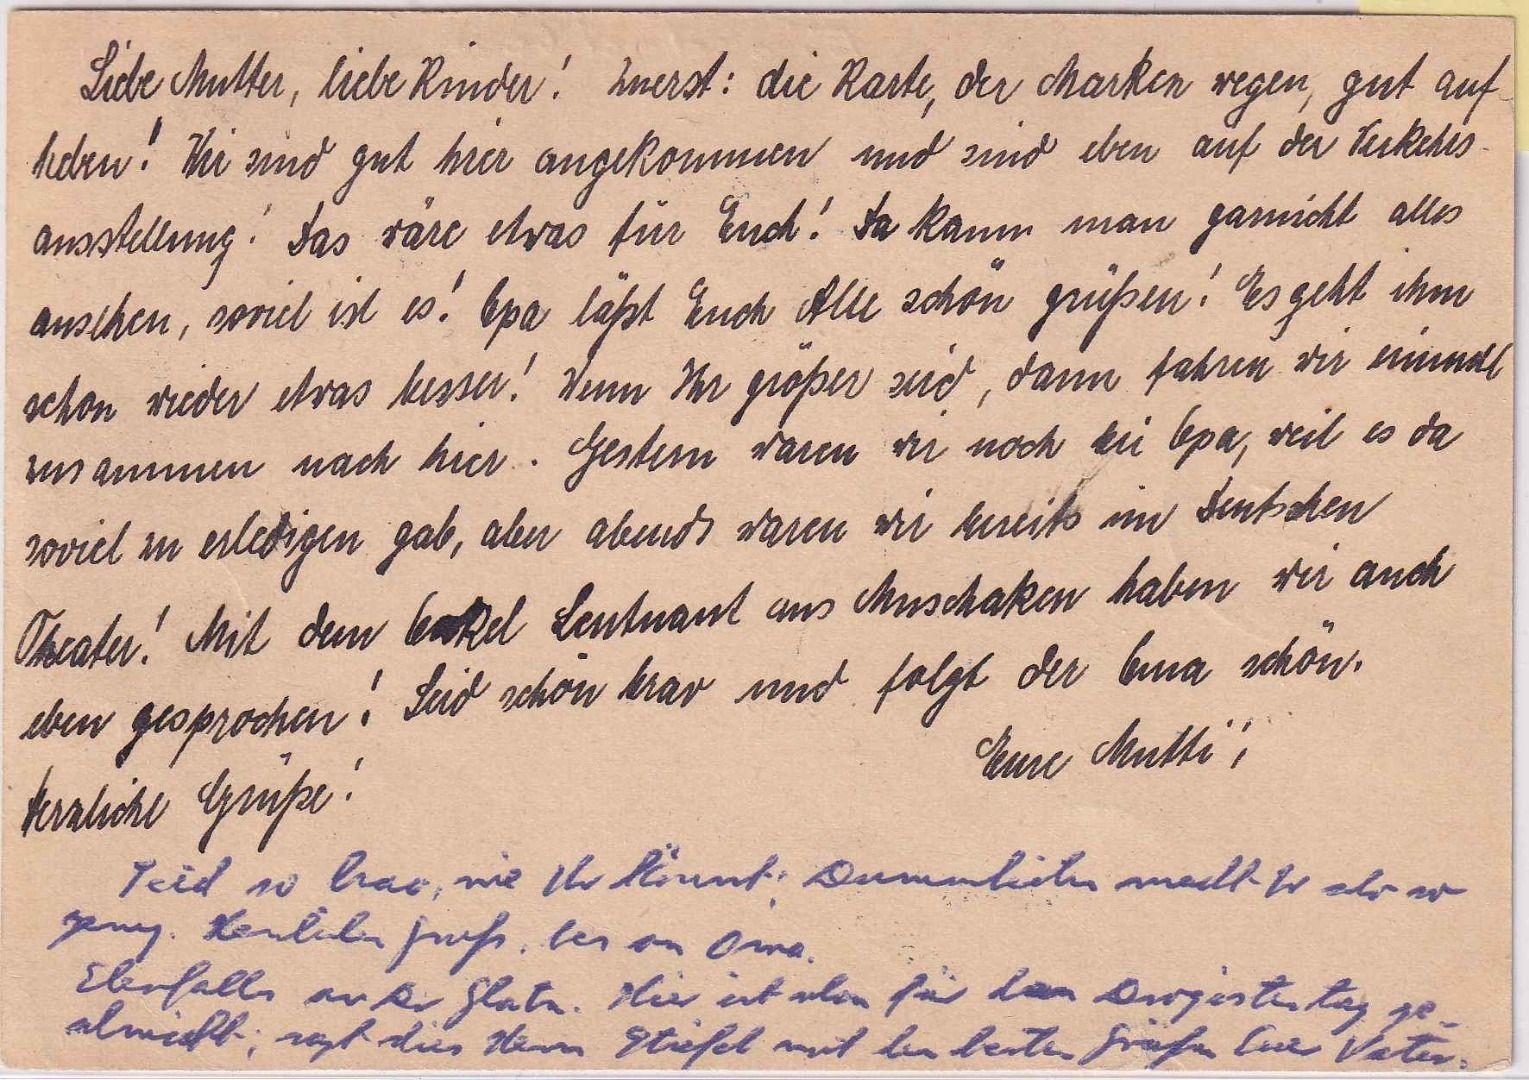 Liebe Mutter, liebe Kinder! Zuerst: die Karte, der Marken wegen, gut auf-
heben! Wir sind gut hier angekommen und sind eben auf der Verkehrs-
ausstellung! Das wäre etwas für Euch! Da kann man garnicht alles
ansehen, soviel ist es! Opa läßt Euch Alle schön grüßen! Es geht ihm
schon wieder etwas besser! Wenn Ihr größer seid, dann fahren wir einmal
zusammen nach hier. Gestern waren wir noch bei Opa, weil es da
soviel zu erledigen gab, aber abends waren wir bereits im Deutschen
Theater! Mit dem Onkel Leutnant aus Muschaken haben wir auch
eben gesprochen! Seid schön brav und folgt der Oma schön.
Eure Mutti!
Herzliche Grüße!
Seid so brav, wie Ihr könnt. Dummheiten macht Ihr so
genug. Herzlichen Gruß, bes. an Oma.
Ebenfalls an Hier ist alles für den Drogistentag ge-
schmückt; sagt dies Herrn Stiefel mit den besten Grüßen Euer Vater.